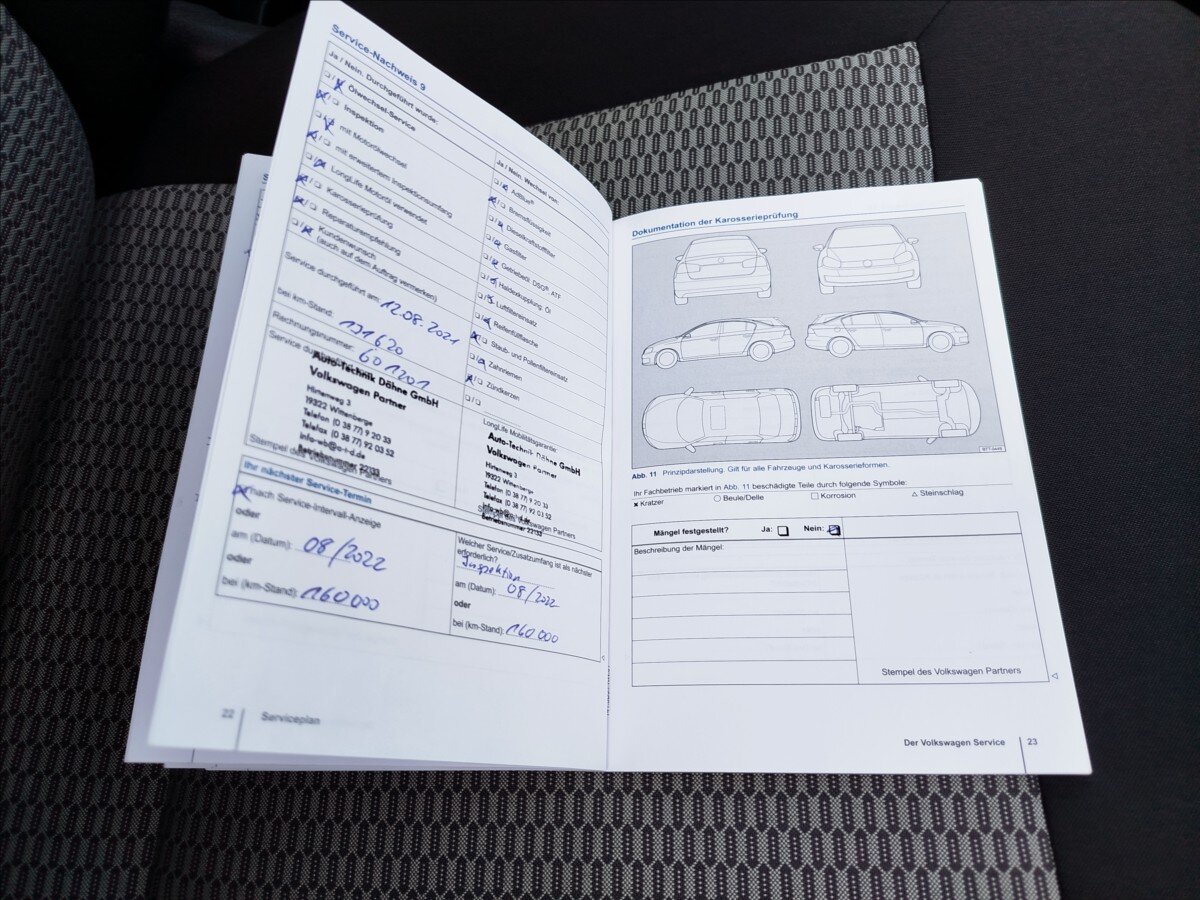 Service-Nachweis 9
Ja / Nein. Durchgeführt wurde:
Ölwechsel-Service
Inspektion
mit Motorölwechsel
mit erweitertem Inspektionsumfang
LongLife Motoröl verwendet
Karosserieprüfung
Reparaturempfehlung
Kundenwunsch
(auch auf dem Auftrag vermerken)
Service durchgeführt am: 12.08.2021
bei km-Stand: 131620
Rechnungsnummer: 601201
Auto-Technik Döhne GmbH
Volkswagen Partner
Hirtenweg 3
19322 Wittenberge
Telefon (0 38 77) 9 20 33
Telefax (0 38 77) 92 03 52
info-wb@a-t-d.de
Betriebsnummer 22133
Stempel des Volkswagen Partners
Ja / Nein. Wechsel von:
AdBlue®
Bremsflüssigkeit
Dieselkraftstofffilter
Gasfilter
Getriebeöl: DSG®, ATF
Haldexkupplung: Öl
Luftfiltereinsatz
Reifenfüllflasche
Staub- und Pollenfiltereinsatz
Zahnriemen
Zündkerzen
LongLife Mobilitätsgarantie:
Auto-Technik Döhne GmbH
Volkswagen Partner
Hirtenweg 3
19322 Wittenberge
Telefon (0 38 77) 9 20 33
Telefax (0 38 77) 92 03 52
info-wb@a-t-d.de
Betriebsnummer 22133
Stempel des Volkswagen Partners
Ihr nächster Service-Termin
nach Service-Intervall-Anzeige
oder
am (Datum): 08/2022
oder
bei (km-Stand): 160000
Welcher Service/Zusatzumfang ist als nächster
erforderlich?
Inspektion
am (Datum): 08/2022
oder
bei (km-Stand): 160 000
22 Serviceplan
Dokumentation der Karosserieprüfung
Abb. 11 Prinzipdarstellung. Gilt für alle Fahrzeuge und Karosserieformen.
Ihr Fachbetrieb markiert in Abb. 11 beschädigte Teile durch folgende Symbole:
× Kratzer ○ Beule/Delle □ Korrosion △ Steinschlag
Mängel festgestellt? Ja: Nein:
Beschreibung der Mängel:
Stempel des Volkswagen Partners
Der Volkswagen Service 23